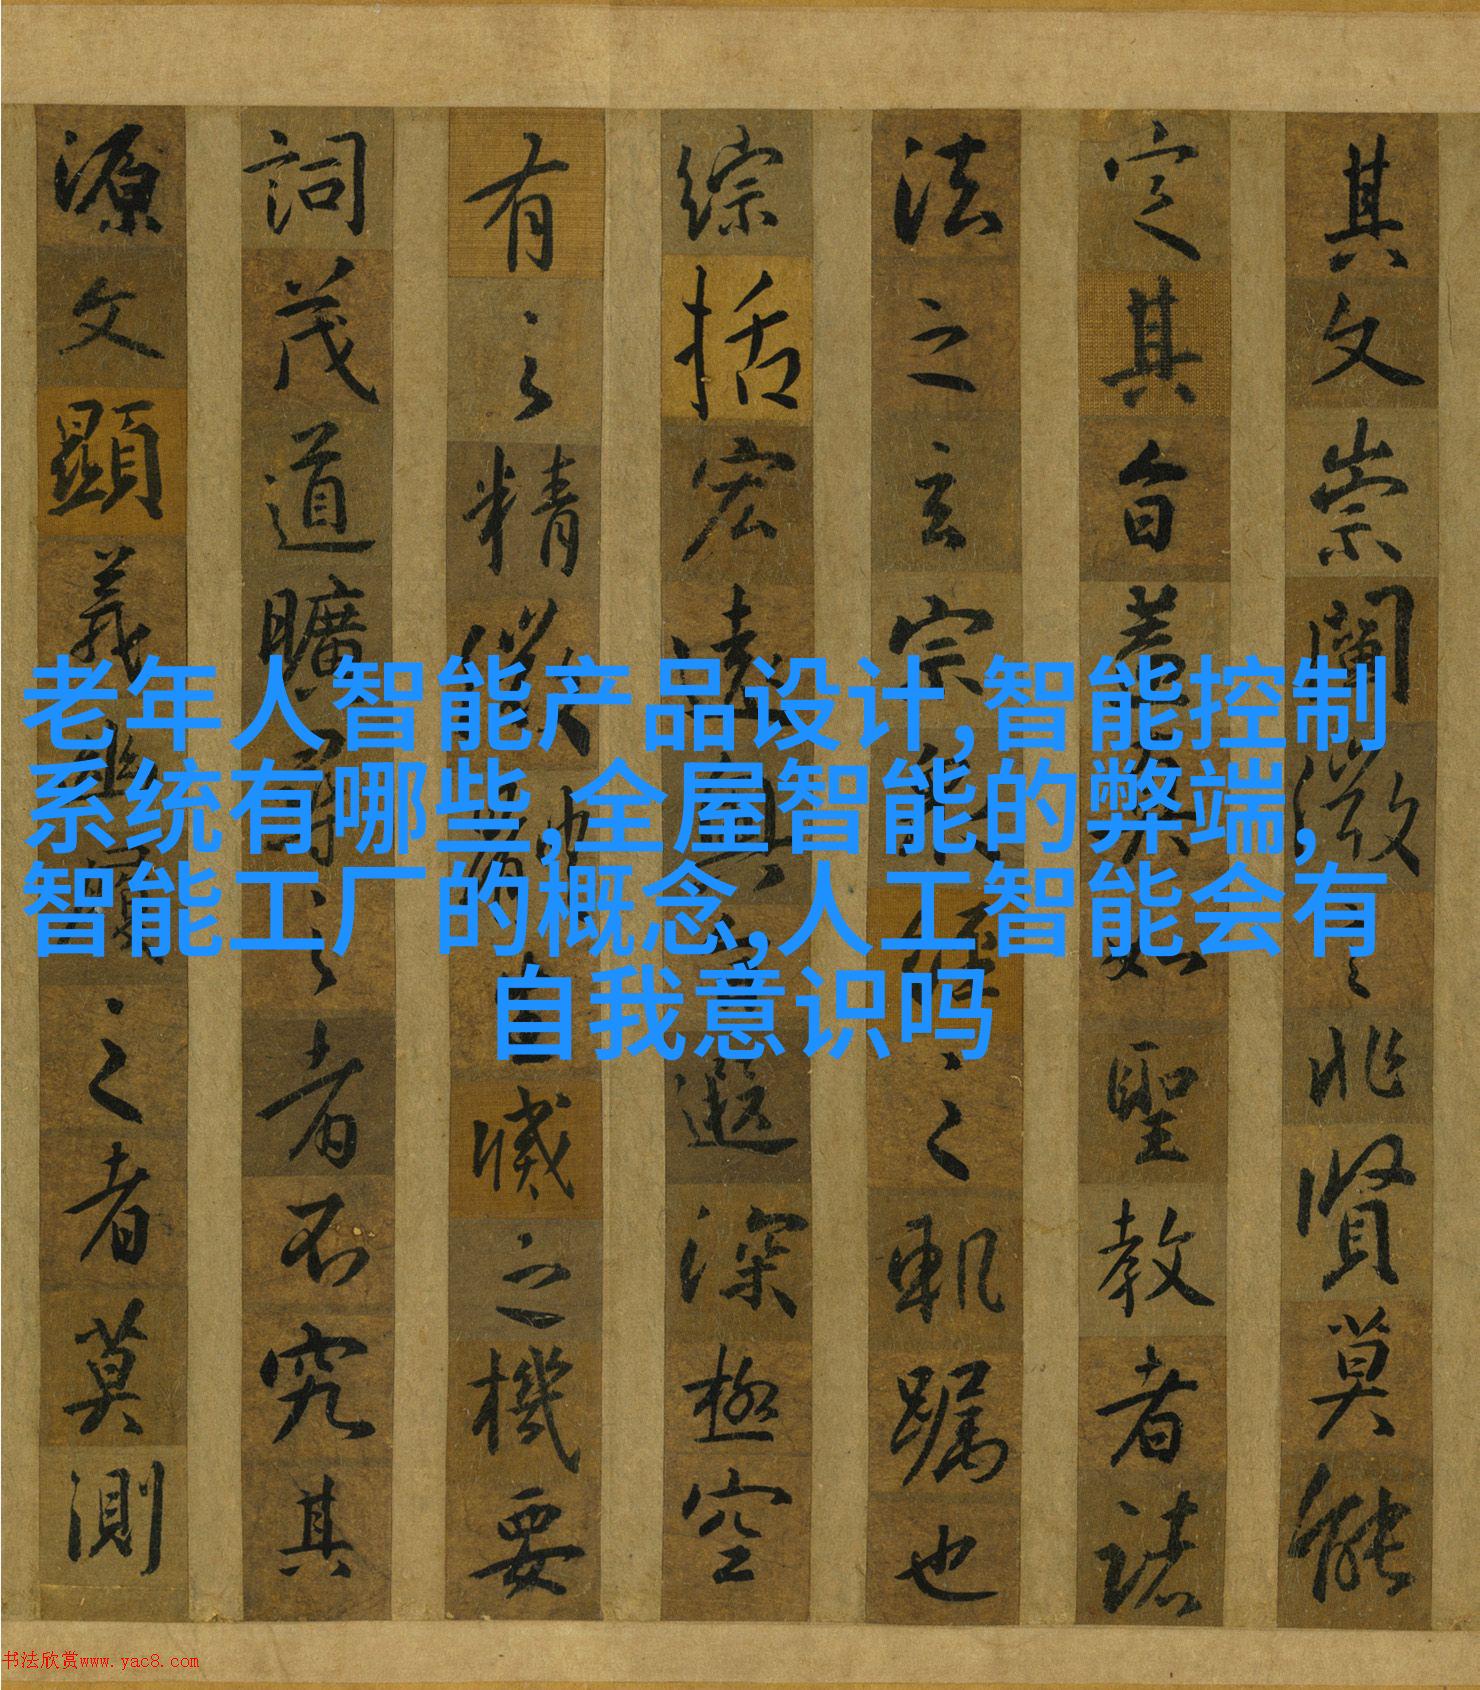 其文崇闡微言非賢莫能
定其旨蓋真如聖教者諸
法之玄宗衆經之軌躅也
綜括宏遠奧旨遐深極空
有之精微體生滅之機要
詞茂道曠尋之者不究其
源文顯義幽履之者莫測
老年人智能产品设计,智能控制
系统有哪些,全屋智能的弊端,
智能工厂的概念,人工智能会有
自我意识吗
书法欣赏www.yac8.com